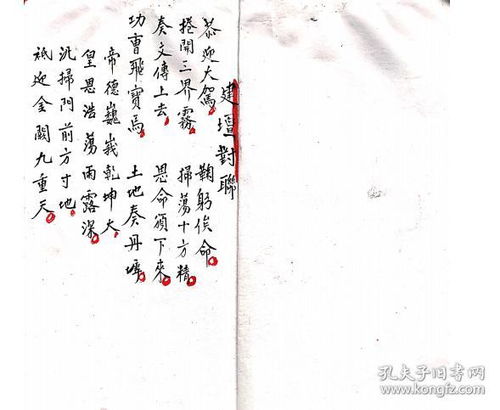 建壇對聯
恭迎大駕 鞠躬俟命
捲開三界霧 掃蕩十方精
奏文傳上去 恩命頒下來
功曹飛寶馬 土地奏丹墀
帝德巍峩乾坤大
皇恩浩蕩雨露深
汎掃門前方寸地
祗迎金闕九重天
孔夫子旧书网